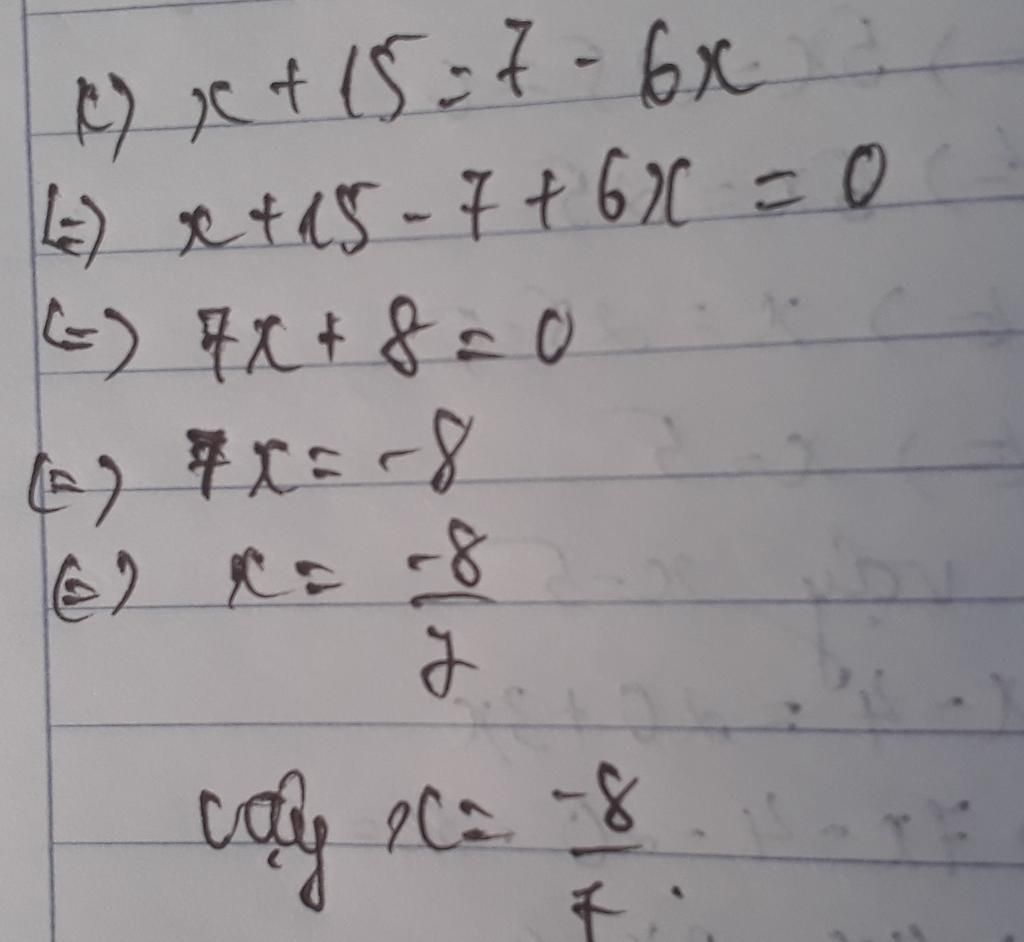 k) x + 15 = 7 - 6x
(=) x + 15 - 7 + 6x = 0
(=) 7x + 8 = 0
(=) 7x = -8
(=) x = -8/7
vậy x = -8/7.